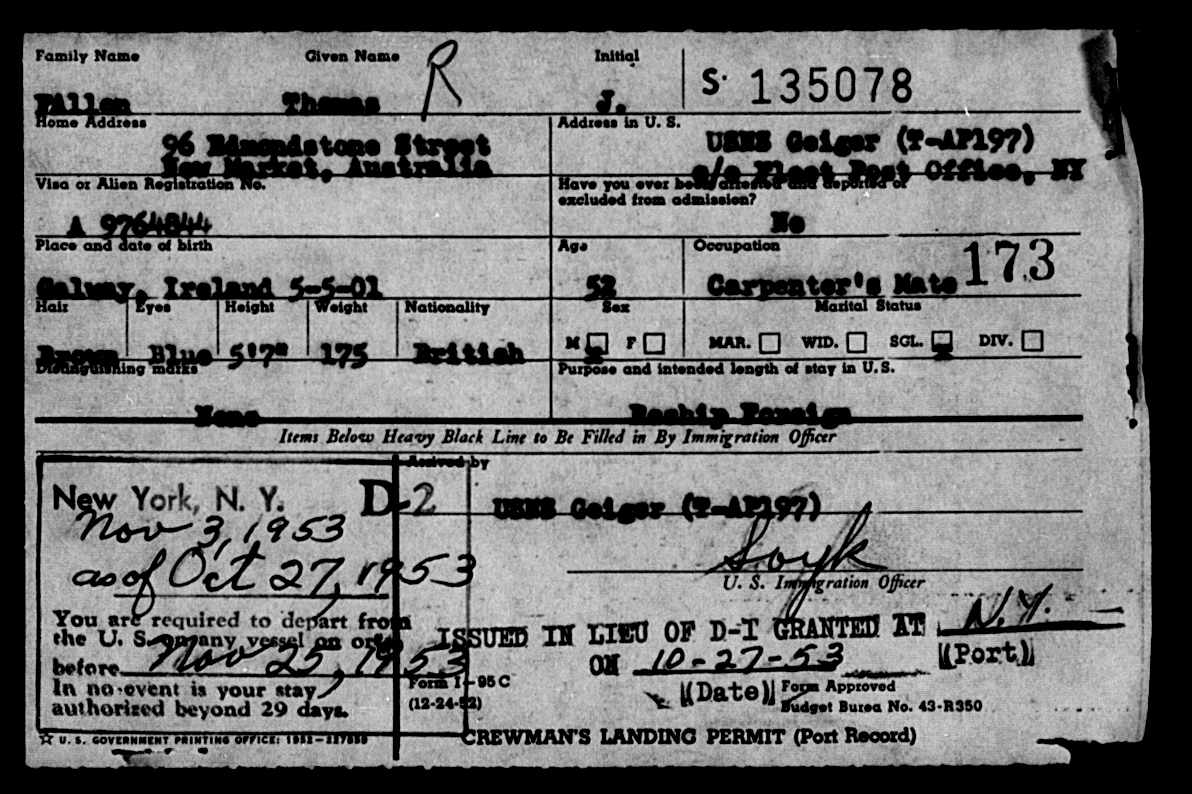 Family Name Given Name R Initial S. 135078
FAllen Thomas J.
Home Address Address in U. S.
96 Edmondstone Street USNS Geiger (T-AP197)
New Market, Australia c/o Fleet Post Office, NY
Visa or Alien Registration No. Have you ever been arrested and deported or
excluded from admission?
A 9764844 No
Place and date of birth Age Occupation
Galway, Ireland 5-5-01 52 Carpenter's Mate 173
Hair Eyes Height Weight Nationality Sex Marital Status
Brown Blue 5'7" 175 British M F MAR. WID. SGL. DIV.
Distinguishing marks Purpose and intended length of stay in U.S.
None Reship Foreign
Items Below Heavy Black Line to Be Filled in By Immigration Officer
Arrived by
New York, N. Y. D-2 USNS Geiger (T-AP197)
Nov 3, 1953
as of Oct 27, 1953
U. S. Immigration Officer
You are required to depart from
the U. S. on any vessel on or
before Nov 25, 1953
In no event is your stay
authorized beyond 29 days.
ISSUED IN LIEU OF D-T GRANTED AT N.Y.
(Port)
ON 10-27-53
(Date)
Form I-95 C
(12-24-52)
Form Approved
Budget Burea No. 43-R350
U. S. GOVERNMENT PRINTING OFFICE: 1952
CREWMAN'S LANDING PERMIT (Port Record)